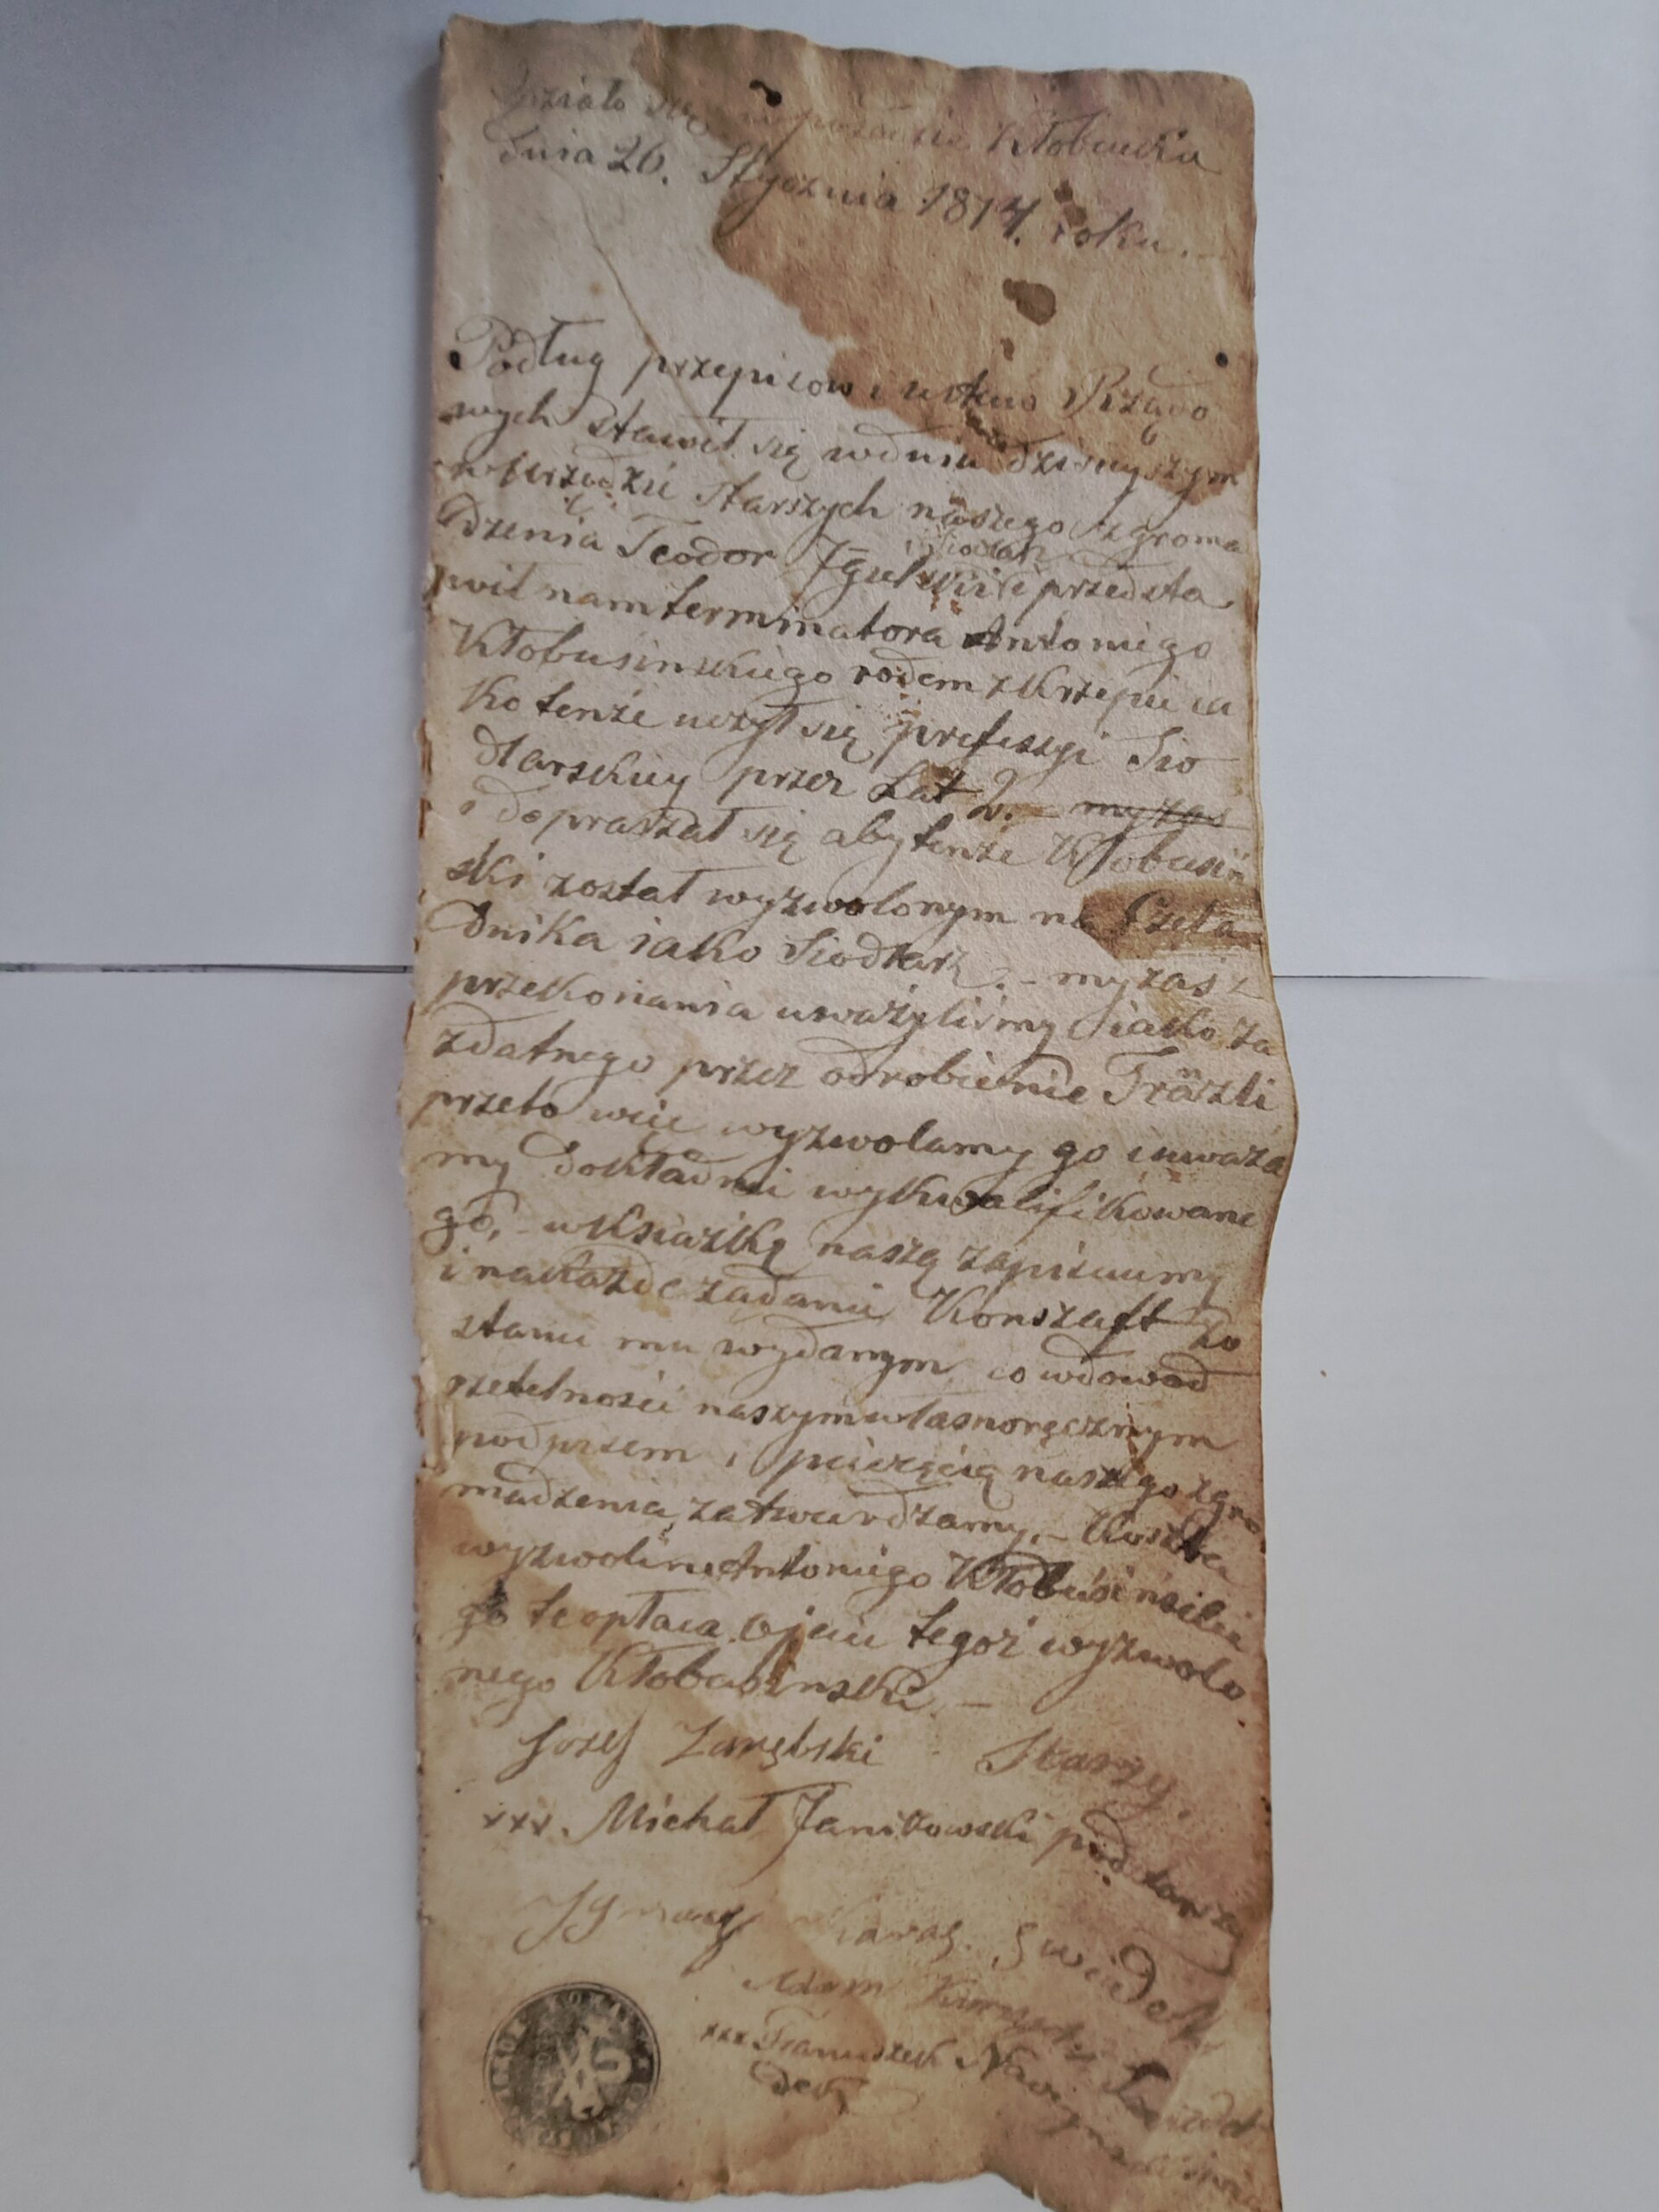 Działo się w Kłobucku
dnia 26. Stycznia 1814. roku.
Podług przepisow i ustaw Rządo
wych stawił się w dniu dzisieyszym
w Urzędzie starszych naszego zgroma
dzenia Teodor Siodlarz przedsta
wił nam terminatora Antoniego
Kłobusinskiego rodem z Krzepic ia
ko tenże uczył się professyi Sio
dlarskiey przez Lat 2. – my zas
i dopraszał się aby tenże Kłobusiń
ski został wyzwolonym na Czela
dnika iako Siodlarz. – my zaś z
przekonania uważyliśmy iako za
zdatnego przez odrobienie
przeto więc wyzwolamy go i uważa
my dokładnie wykwalifikowane
go, – w Ksiażkę naszą zapisuiemy
i na każde żądanie Konszaft zo
stanie mu wydanym, co w dowod
rzetelności naszym własnoręcznym
podpisem i pieczęcią naszego zgro
madzenia zatwierdzamy. – Koszta
wyzwolin Antoniego Kłobusinskie
go te opłaca Ojciec tegoż wyzwolo
nego Kłobusinski. –
Jozef Zarębski Starszy
xxx. Michał Janikowski podstarszy
Ignacy Karaś. Swiadek
Adam
xxx Franciszek